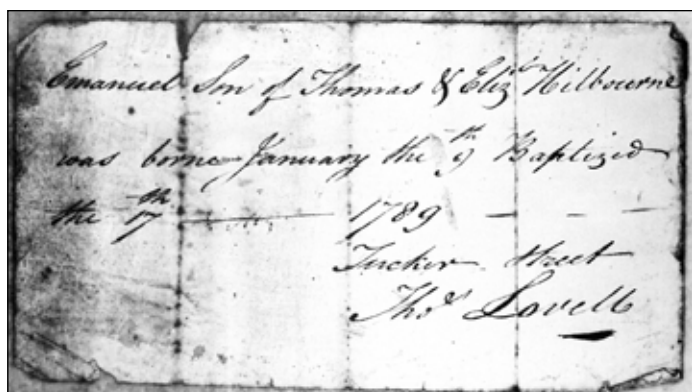 Emanuel Son of Thomas & Eliz.h Hilbourne
was borne January the 9th Baptized
the 17th — 1789 —
Tucker Street
Thos Lovell